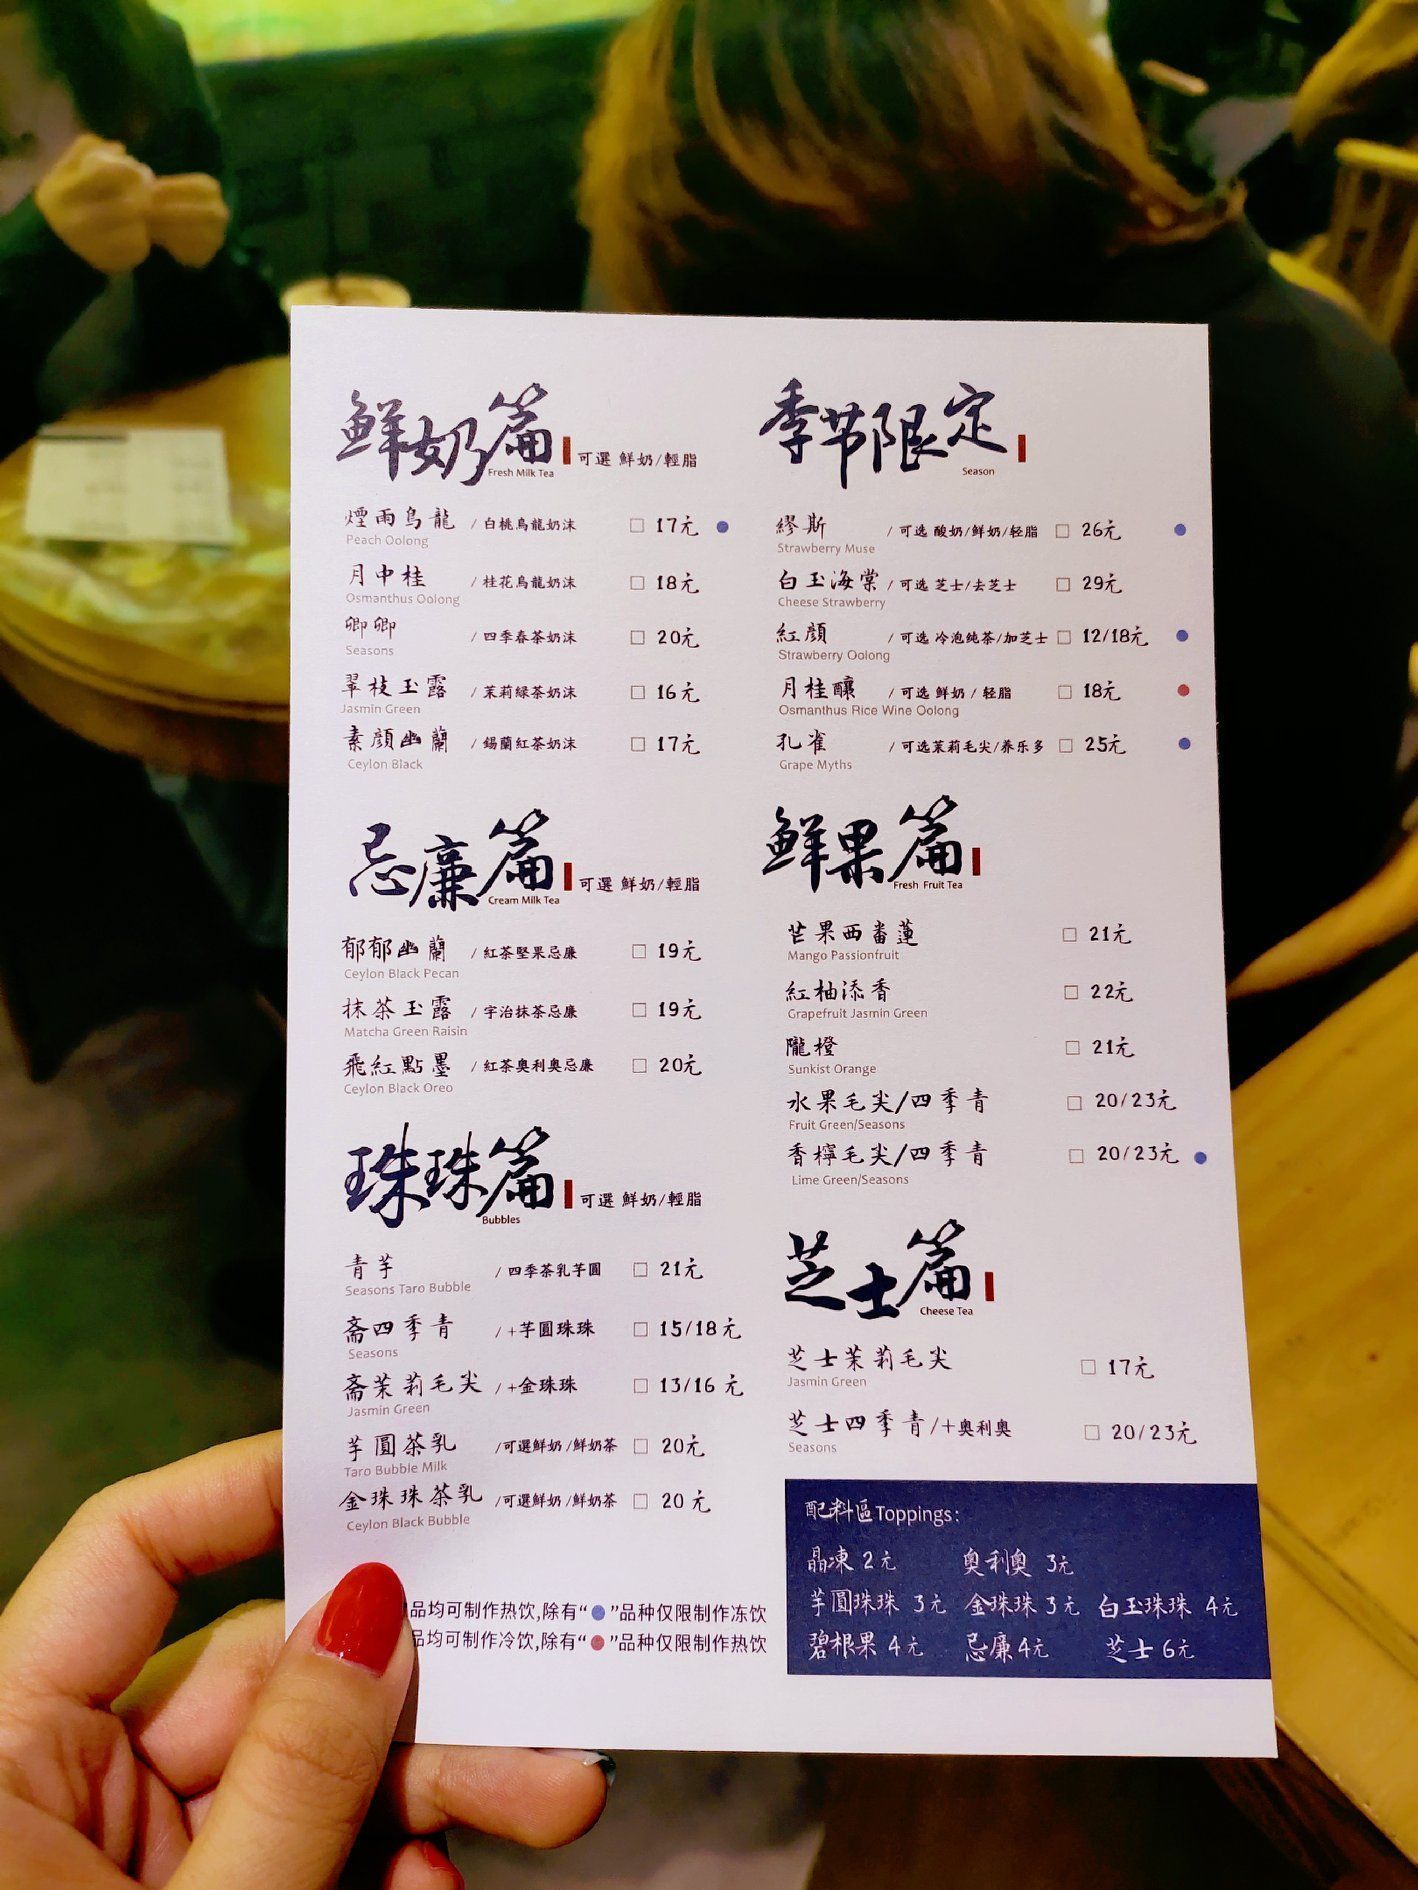 鮮奶篇
Fresh Milk Tea
可選 鮮奶/輕脂
煙雨烏龍 / 白桃烏龍奶沫 □ 17元
Peach Oolong
月中桂 / 桂花烏龍奶沫 □ 18元
Osmanthus Oolong
卿卿 / 四季春茶奶沫 □ 20元
Seasons
翠枝玉露 / 茉莉緑茶奶沫 □ 16元
Jasmin Green
素顔幽蘭 / 錫蘭紅茶奶沫 □ 17元
Ceylon Black
忌廉篇
Cream Milk Tea
可選 鮮奶/輕脂
郁郁幽蘭 / 紅茶堅果忌廉 □ 19元
Ceylon Black Pecan
抹茶玉露 / 宇治抹茶忌廉 □ 19元
Matcha Green Raisin
飛紅點墨 / 紅茶奥利奥忌廉 □ 20元
Ceylon Black Oreo
珠珠篇
Bubbles
可選 鮮奶/輕脂
青芋 / 四季茶乳芋圓 □ 21元
Seasons Taro Bubble
斋四季青 / +芋圓珠珠 □ 15/18元
Seasons
斋茉莉毛尖 / +金珠珠 □ 13/16 元
Jasmin Green
芋圓茶乳 /可選鮮奶/鮮奶茶 □ 20元
Taro Bubble Milk
金珠珠茶乳 /可選鮮奶/鮮奶茶 □ 20 元
Ceylon Black Bubble
品均可制作热饮,除有“●”品种仅限制作冻饮
品均可制作冷饮,除有“●”品种仅限制作热饮
季节限定
Season
繆斯 / 可选 酸奶/鲜奶/轻脂 □ 26元
Strawberry Muse
白玉海棠 / 可选 芝士/去芝士 □ 29元
Cheese Strawberry
紅顔 / 可选 冷泡纯茶/加芝士 □ 12/18元
Strawberry Oolong
月桂釀 / 可选 鲜奶 / 轻脂 □ 18元
Osmanthus Rice Wine Oolong
孔雀 / 可选茉莉毛尖/养乐多 □ 25元
Grape Myths
鮮果篇
Fresh Fruit Tea
芒果西番蓮 □ 21元
Mango Passionfruit
紅柚添香 □ 22元
Grapefruit Jasmin Green
隴橙 □ 21元
Sunkist Orange
水果毛尖/四季青 □ 20/23元
Fruit Green/Seasons
香檸毛尖/四季青 □ 20/23元
Lime Green/Seasons
芝士篇
Cheese Tea
芝士茉莉毛尖 □ 17元
Jasmin Green
芝士四季青/+奥利奥 □ 20/23元
Seasons
配料區Toppings:
晶凍 2元 奥利奥 3元
芋圓珠珠 3元 金珠珠 3元 白玉珠珠 4元
碧根果 4元 忌廉 4元 芝士 6元